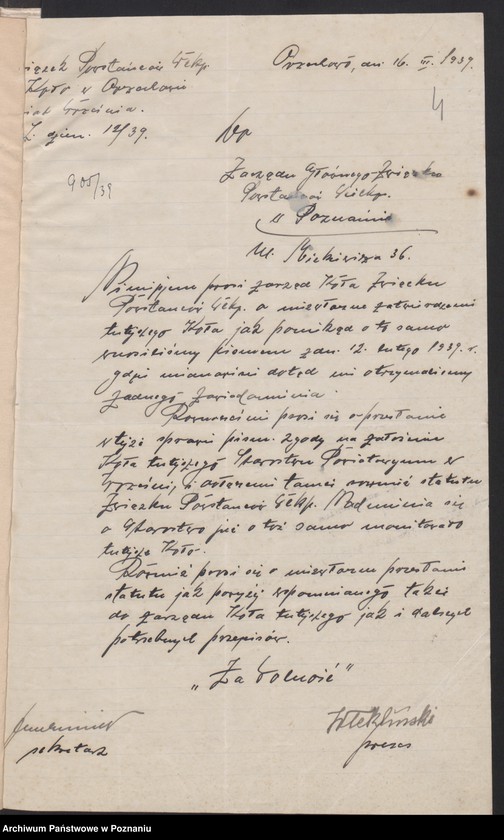 Związek Powstańców Wlkp.
Koło w Orzechowie
Września.
L. dzien. 12/39.
Orzechowo, dn. 16. III. 1939.
4
905/39
Do
Zarządu Głównego Związku
Powstańców Wielkp.
w Poznaniu
Ul. Mickiewicza 36.
Niniejszem prosi zarząd Koła Związku
Powstańców Wlkp. o niezwłoczne zatwierdzenie
tutejszego Koła jak ponikąd o to samo
wnosiliśmy pismem z dn. 12. lutego 1939. r.
gdyż mianowicie dotąd nie otrzymaliśmy
żadnego zawiadomienia.
prosi się o przesłanie
w tejże sprawie pism. zgody na założenie
Koła tutejszego Starostwu Powiatowemu we
Wrześni, i dołączeni tamże również statutu
Związku Powstańców Wlkp. Nadmienia się
o Starostwo już o toż samo monitowało
tutejsze Koło.
Również prosi się o niezwłoczne przesłanie
statutu jak powyżej wspomnianego także
do zarządu Koła tutejszego jak i dalszych
potrzebnych przepisów.
„Za Wolność"
sekretarz
prezes
Archiwum Państwowe w Poznaniu